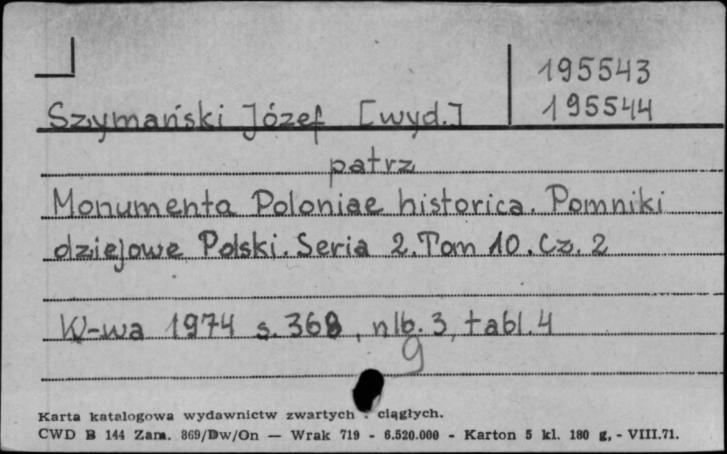 195543
Szymański Józef [wyd.] 195544
patrz
Monumenta Poloniae historica. Pomniki
dziejowe Polski. Seria 2. Tom 10. Cz. 2
W-wa 1974 s. 368, nlb. 3, tabl. 4
9
Karta katalogowa wydawnictw zwartych i ciągłych.
CWD B 144 Zam. 869/Dw/On — Wrak 719 - 6.520.000 - Karton 5 kl. 180 g, - VIII.71.